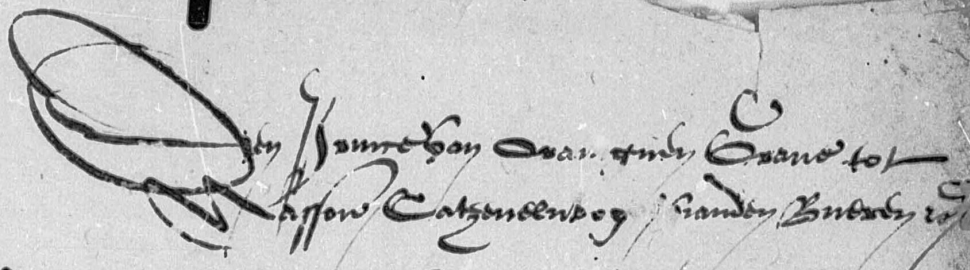 Den Prince van Oraingnien Grave tot
Nassow Catzenelnbog Vianden Bueren